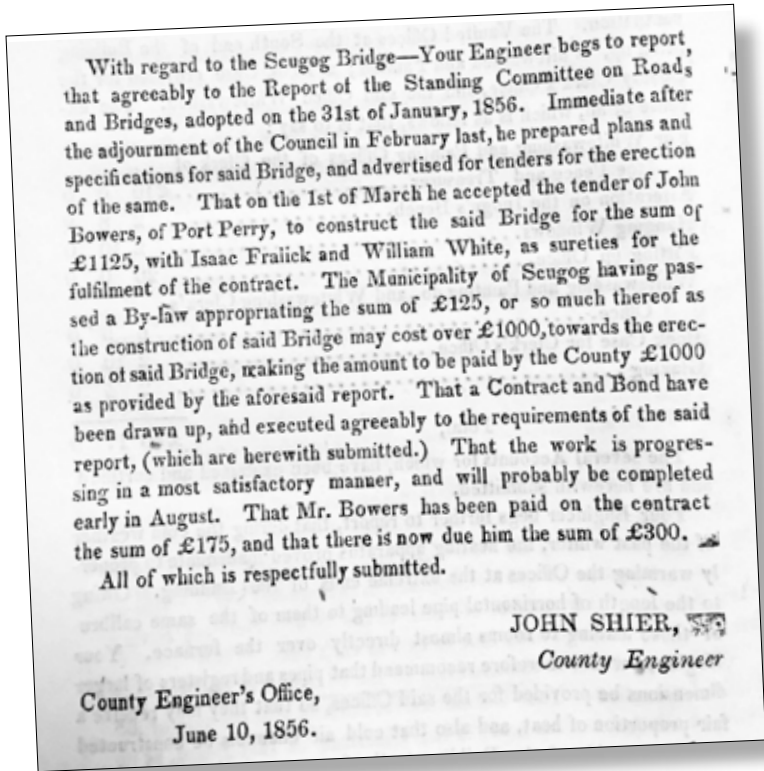 With regard to the Scugog Bridge—Your Engineer begs to report,
that agreeably to the Report of the Standing Committee on Roads
and Bridges, adopted on the 31st of January, 1856. Immediate after
the adjournment of the Council in February last, he prepared plans and
specifications for said Bridge, and advertised for tenders for the erection
of the same. That on the 1st of March he accepted the tender of John
Bowers, of Port Perry, to construct the said Bridge for the sum of
£1125, with Isaac Fralick and William White, as sureties for the
fulfilment of the contract. The Municipality of Scugog having pas-
sed a By-law appropriating the sum of £125, or so much thereof as
the construction of said Bridge may cost over £1000, towards the erec-
tion of said Bridge, making the amount to be paid by the County £1000
as provided by the aforesaid report. That a Contract and Bond have
been drawn up, and executed agreeably to the requirements of the said
report, (which are herewith submitted.) That the work is progres-
sing in a most satisfactory manner, and will probably be completed
early in August. That Mr. Bowers has been paid on the contract
the sum of £175, and that there is now due him the sum of £300.
All of which is respectfully submitted.
JOHN SHIER,
County Engineer
County Engineer's Office,
June 10, 1856.